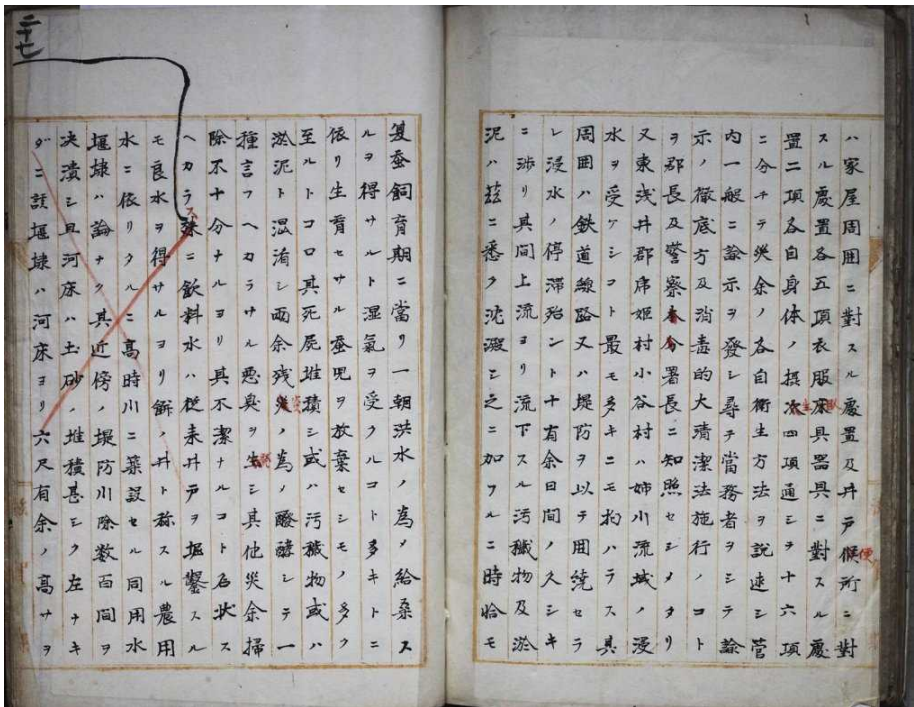 ハ家屋周囲ニ對スル處置及井戸候所ニ對
便
スル處置各五項衣服床具器具ニ對スル處
臥
置二項各自身体ノ摂次四項通シテ十六項
生
ニ分チテ災余ノ各自衛生方法ヲ説述シ管
内一般ニ諭示ヲ發シ尋テ當務者ヲシテ諭
示ノ徹底方及消毒的大清潔法施行ノコト
ヲ郡長及警察分署長ニ知照セシメタリ
又東浅井郡虎姫村小谷村ハ姉川流域ノ浸
水ヲ受ケシコト最モ多キニモ拘ハラス其
周囲ハ鉄道線路又ハ堤防ヲ以テ囲繞セラ
レ浸水ノ停滞殆ント十有余日間ノ久シキ
ニ渉リ其間上流ヨリ流下スル汚穢物及淤
泥ハ茲ニ悉ク沈澱シ之ニ加フルニ時恰モ
二十七
夏蚕飼育期ニ當リ一朝洪水ノ為メ給桑ス
ルヲ得サルト湿氣ヲ受クルコト多キトニ
依リ生育セサル蚕児ヲ放棄セシモノ多ク
至ルトコロ其死屍堆積シ或ハ汚穢物或ハ
淤泥ト混淆シ雨余残ノ為メ醗酵シテ一
種言フヘカラサル悪臭ヲ生シ其他災余掃
除不十分ナルヨリ具不潔ナルコト名状ス
ヘカラス殊ニ飲料水ハ従来井戸ヲ堀鑿スル
モ良水ヲ得サルヨリ餅ノ井ト称スル農用
水ニ依リタルニ高時川ニ築設セル同用水
堰埭ハ論ナク其近傍ノ堤防川除数百間ヲ
决潰シ且河床ハ土砂ノ堆積甚シク左ナキ
ダニ該堰埭ハ河床ヨリ六尺有余ノ高サヲ